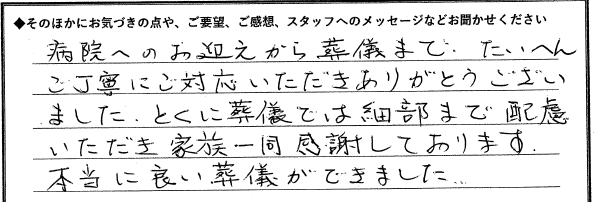 ◆そのほかにお気づきの点や、ご要望、ご感想、スタッフへのメッセージなどお聞かせください
病院へのお迎えから葬儀まで、たいへん
ご丁寧にご対応いただきありがとうござい
ました。とくに葬儀では細部まで配慮
いただき家族一同感謝しております。
本当に良い葬儀ができました。